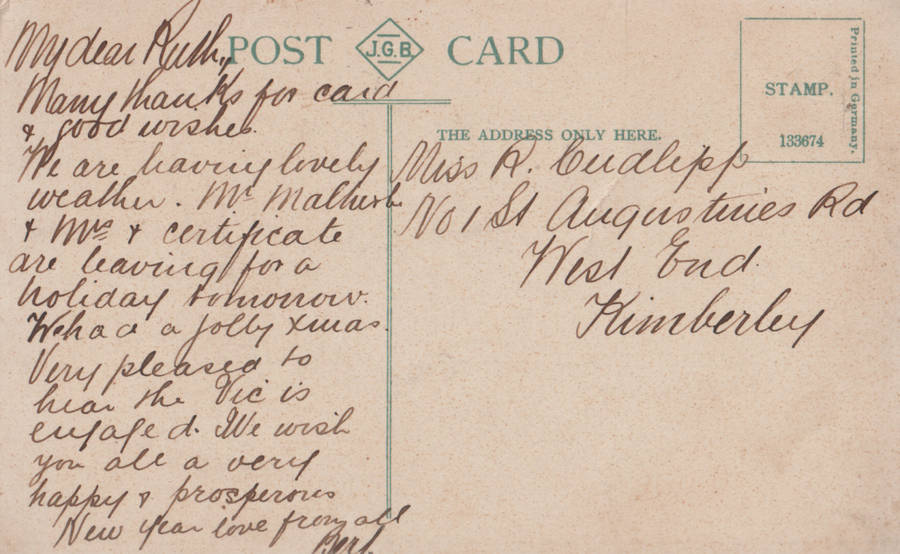 POST J.G.B. CARD
My dear Ruth,
Many thanks for card
& good wishes.
We are having lovely
weather. Mr Malherbe
& Mrs & certificate
are leaving for a
holiday tomorrow.
We had a jolly Xmas.
Very pleased to
hear the Vic is
engaged. We wish
you all a very
happy & prosperous
New Year love from all
Bert.
THE ADDRESS ONLY HERE.
Miss R. Cudlipp
No 1 St Augustines Rd
West End.
Kimberley
STAMP.
133674
Printed in Germany.